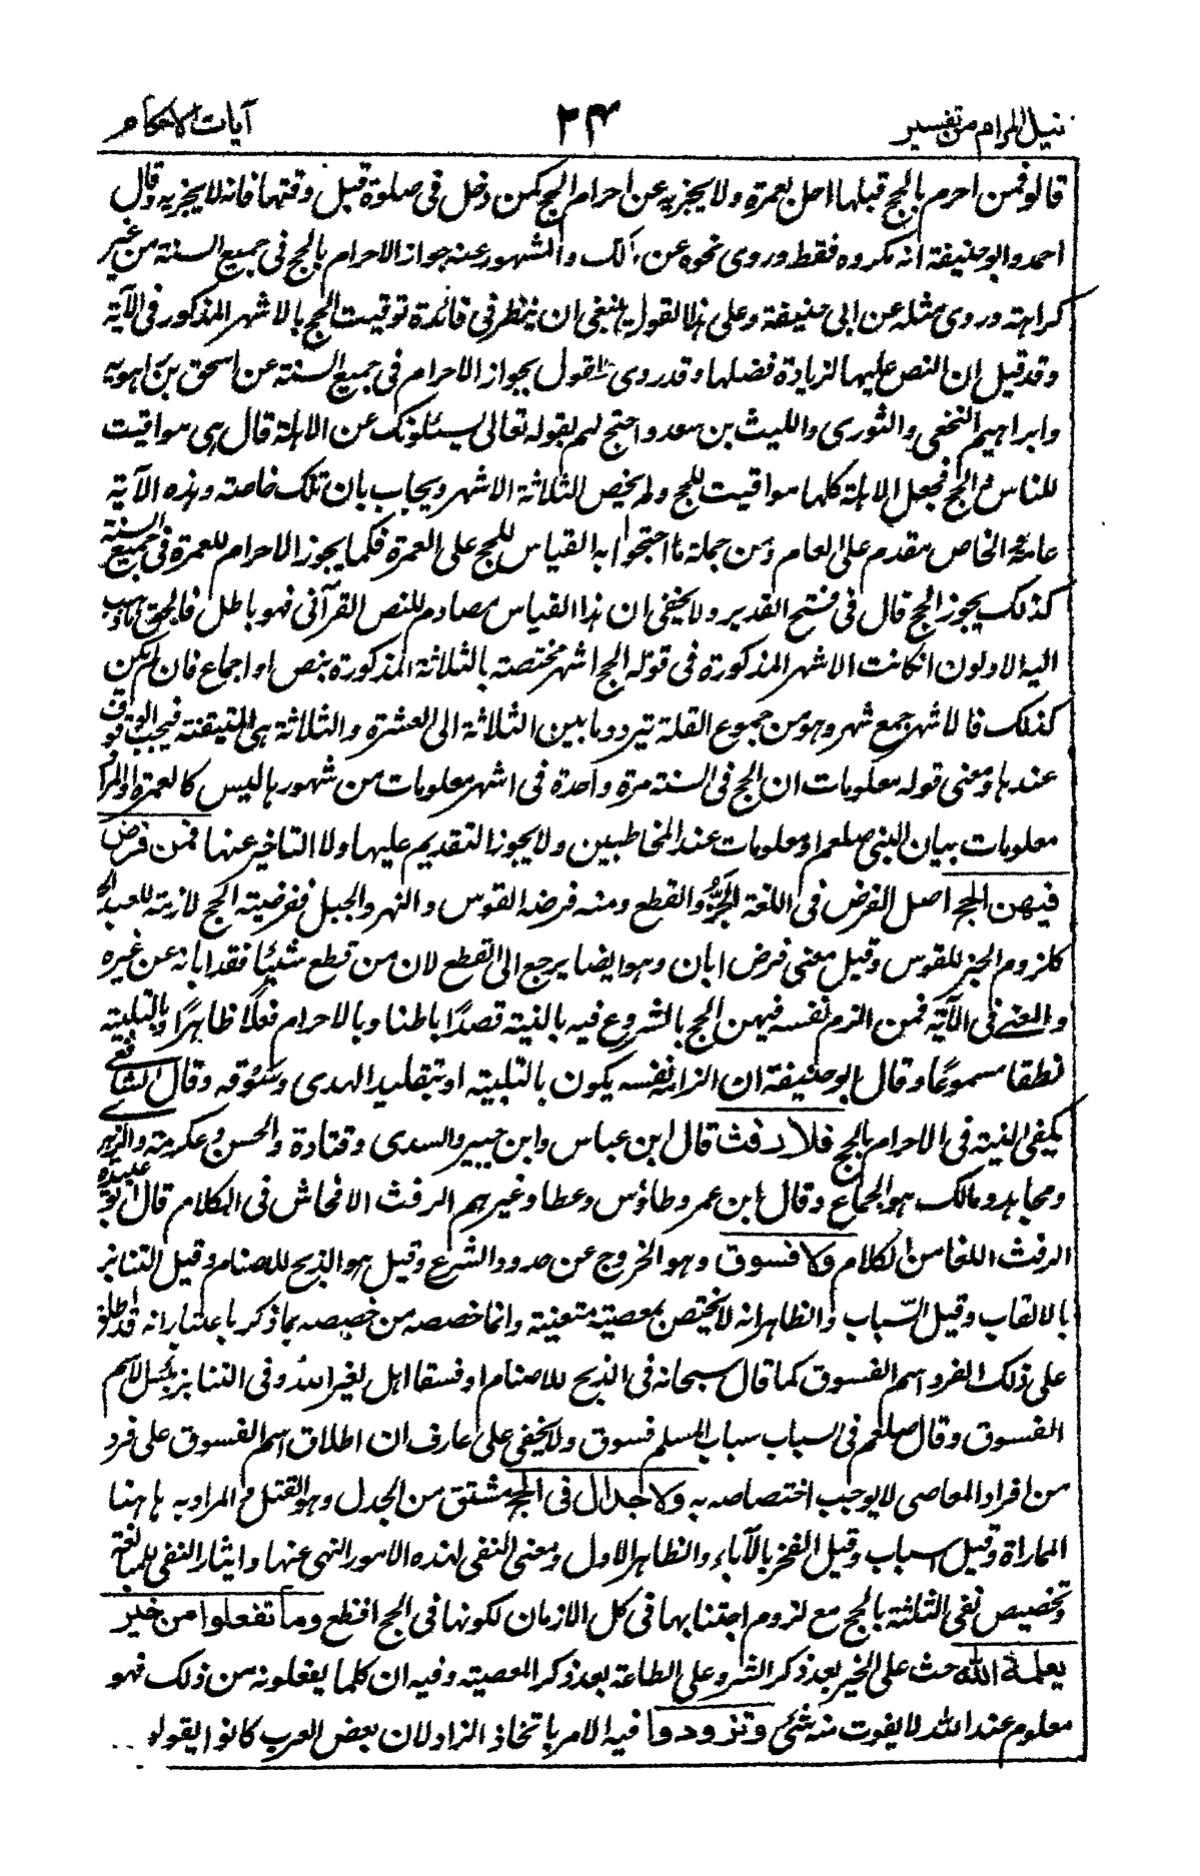 نيل المرام من تفسير ٢٤ آيات الاحكام
قالوا فمن احرم بالحج قبلها احل بعمرة ولا يجزيه عن احرام الحج كمن دخل فى صلوة قبل وقتها فانه لا يجزيه وقال
احمد وابو حنيفة انه مكروه فقط وروى نحوه عن مالك والمشهور عنه جواز الاحرام بالحج فى جميع السنة من غير
كراهة وروى مثله عن ابى حنيفة وعلى هذا القول ينبغى ان ينظر فى فائدة توقيت الحج بالاشهر المذكور فى الآية
وقد قيل ان النص عليها لزيادة فضلها وقد روى القول بجواز الاحرام فى جميع السنة عن اسحق بن راهويه
وابراهيم النخعى والثورى والليث بن سعد واحتج لهم بقوله تعالى يسئلونك عن الاهلة قال هى مواقيت
للناس والحج فجعل الاهلة كلها مواقيت للحج ولم يخص الثلاثة الاشهر ويجاب بان تلك خاصة وهذه الآية
عامة والخاص مقدم على العام ومن جملة ما احتجوا به القياس للحج على العمرة فكما يجوز الاحرام للعمرة فى جميع السنة
كذلك يجوز الحج قال فى فتح القدير ولا يخفى ان هذا القياس مصادم للنص القرآنى فهو باطل فالحق ما ذهب
اليه الاولون ان كانت الاشهر المذكورة فى قوله الحج اشهر مختصة بالثلاثة المذكورة بنص او اجماع فان لم يكن
كذلك فالاشهر جمع شهر وهو من جموع القلة تيردد ما بين الثلاثة الى العشرة والثلاثة هى المتيقنة فيجب الوقوف
عندها ومعنى قوله معلومات ان الحج فى السنة مرة واحدة فى اشهر معلومات من شهورها ليس كالعمرة والمراد
معلومات ببيان النبى صلعم او معلومات عند المخاطبين ولا يجوز التقديم عليها ولا التاخير عنها فمن فرض
فيهن الحج اصل الفرض فى اللغة الحَزُّ والقطع ومنه فرضة القوس والنهر والجبل ففرضية الحج لازمة للعبد الحر
كلزوم الحز للقوس وقيل معنى فرض ابان وهو ايضا يرجع الى القطع لان من قطع شيئًا فقد ابانه عن غيره
والمعنى فى الآية فمن الزم نفسه فيهن الحج بالشروع فيه بالنية قصدًا باطنا وبالاحرام فعلًا ظاهرًا وبالتلبية
نطقا مسموعًا وقال ابو حنيفة ان الزامه نفسه يكون بالتلبية او بتقليد الهدى وسوقه وقال الشافعى
يكفى النية فى الاحرام بالحج فلا رفث قال ابن عباس وابن جبير والسدى وقتادة والحسن وعكرمة والزهرى
ومجاهد ومالك هو الجماع وقال ابن عمر وطاؤس وعطا وغيرهم الرفث الافحاش فى الكلام قال ابو عبيدة
الرفث اللغا من الكلام ولا فسوق وهو الخروج عن حدود الشرع وقيل هو الذبح للاصنام وقيل التنابز
بالالقاب وقيل السّباب والظاهر انه لا يختص بمعصية متعينة وانما خصصه من خصصه بما ذكر باعتبار انه قد اطلق
على ذلك الفرد اسم الفسوق كما قال سبحانه فى الذبح للاصنام او فسقا اهل لغير الله وفى التنابز بئس الاسم
الفسوق وقال صلعم فى السباب سباب المسلم فسوق ولا يخفى على عارف ان اطلاق اسم الفسوق على فرد
من افراد المعاصى لا يوجب اختصاصه به ولا جدال فى الحج مشتق من الجدل وهو القتل والمراد به هاهنا
المماراة وقيل السباب وقيل الفخر بالآباء والظاهر الاول ومعنى النفى لهذه الامور النهى عنها وايثار النفى للمبالغة
وتخصيص نفى الثلثة بالحج مع لزوم اجتنابها فى كل الازمان لكونها فى الحج افظع وما تفعلوا من خير
يعلمه الله حث على الخير بعد ذكر الشر وعلى الطاعة بعد ذكر المعصية وفيه ان كلما يفعلونه من ذلك فهو
معلوم عند الله لا يفوت منه شئ وتزودوا فيه الامر باتخاذ الزاد لان بعض العرب كانوا يقولو